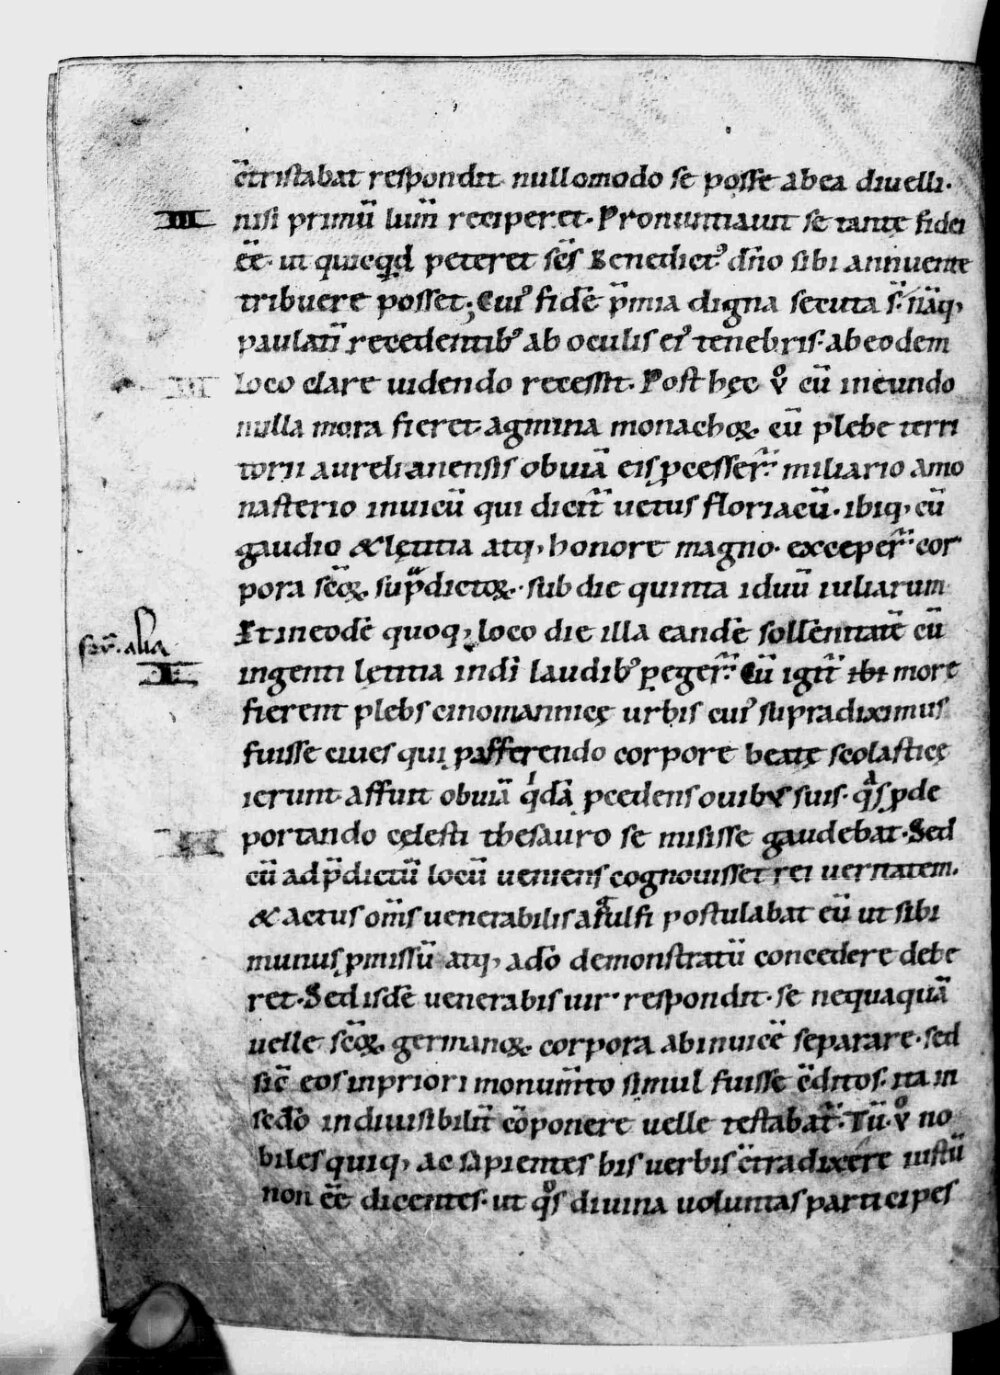 c̄tristabat respondit nullomodo se posse abea diuelli·
III nisi primū lum̄ reciperet· Pronuntiauit se tantę fidei
eē· ut quicq̨d peteret sc̄s Benedict᾽ dn̄o sibi annuente
tribuere posset; Cui᾽ fidē p̄mia digna secuta s̄· nāq,
paulatī recedentib᾽ ab oculis ei᾽ tenebris· ab eodem
loco clare uidendo recessit· Post hęc v̊ cū ineundo
nulla mora fieret agmina monachoꝝ cū plebe terri
torii aurelianensis obuiā eis ꝓcesser̄· miliario amo
nasterio inuicū qui dicit̄ uetus floriacū· ibiq, cū
gaudio & lętitia atq, honore magno· exceper̄· cor
pora sc̄oꝝ sup̄dictoꝝ· sub die quinta iduū iuliarum
Et in eodē quoq, loco die illa eandē sollēnitatē cū
fer̄· alia
I ingenti lętitia in dī laudib᾽ ꝑeger̄· Cū igit̄ ibi more
fierent plebs cinomannicę urbis cui᾽ supradiximus
fuisse ciues qui ꝓ afferendo corpore beatę scolasticę
ierunt affuit obuiā q̇dā p̄cedens ouibus suis· q̊s ꝓ de
portando cęlesti thesauro se misisse gaudebat· Sed
cū ad p̄dictū locū ueniens cognouisset rei ueritatem·
& actus om̄s uenerabilis arulfi postulabat eū ut sibi
munus ꝓmissū atq, ad̄o demonstratū concedere debe
ret· Sed isdē uenerabis uir· respondit· se nequaquā
uelle sc̄oꝝ germanoꝝ corpora abinuicē separare· sed
sic̄ eos in priori monum̄to simul fuisse c̄ditos· ita in
sed̄o indiuisibilit̄ cōponere uelle testabat̄· Tū· v̊ no
biles quiq, ac sapientes his uerbis c̄tradixere iustū
non eē dicentes· ut q̊s diuina uoluntas participes